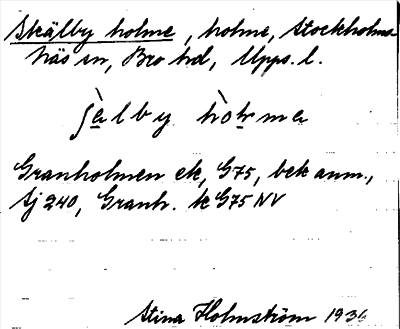 Skälby holme, holme, Stockholms
Näs sn, Bro hd, Upps. l.
ʃàlby hòƚma
Granholmen ek, G75, bek anm.,
Sj 240, Granh. k G75 NV
Stina Holmström 1936